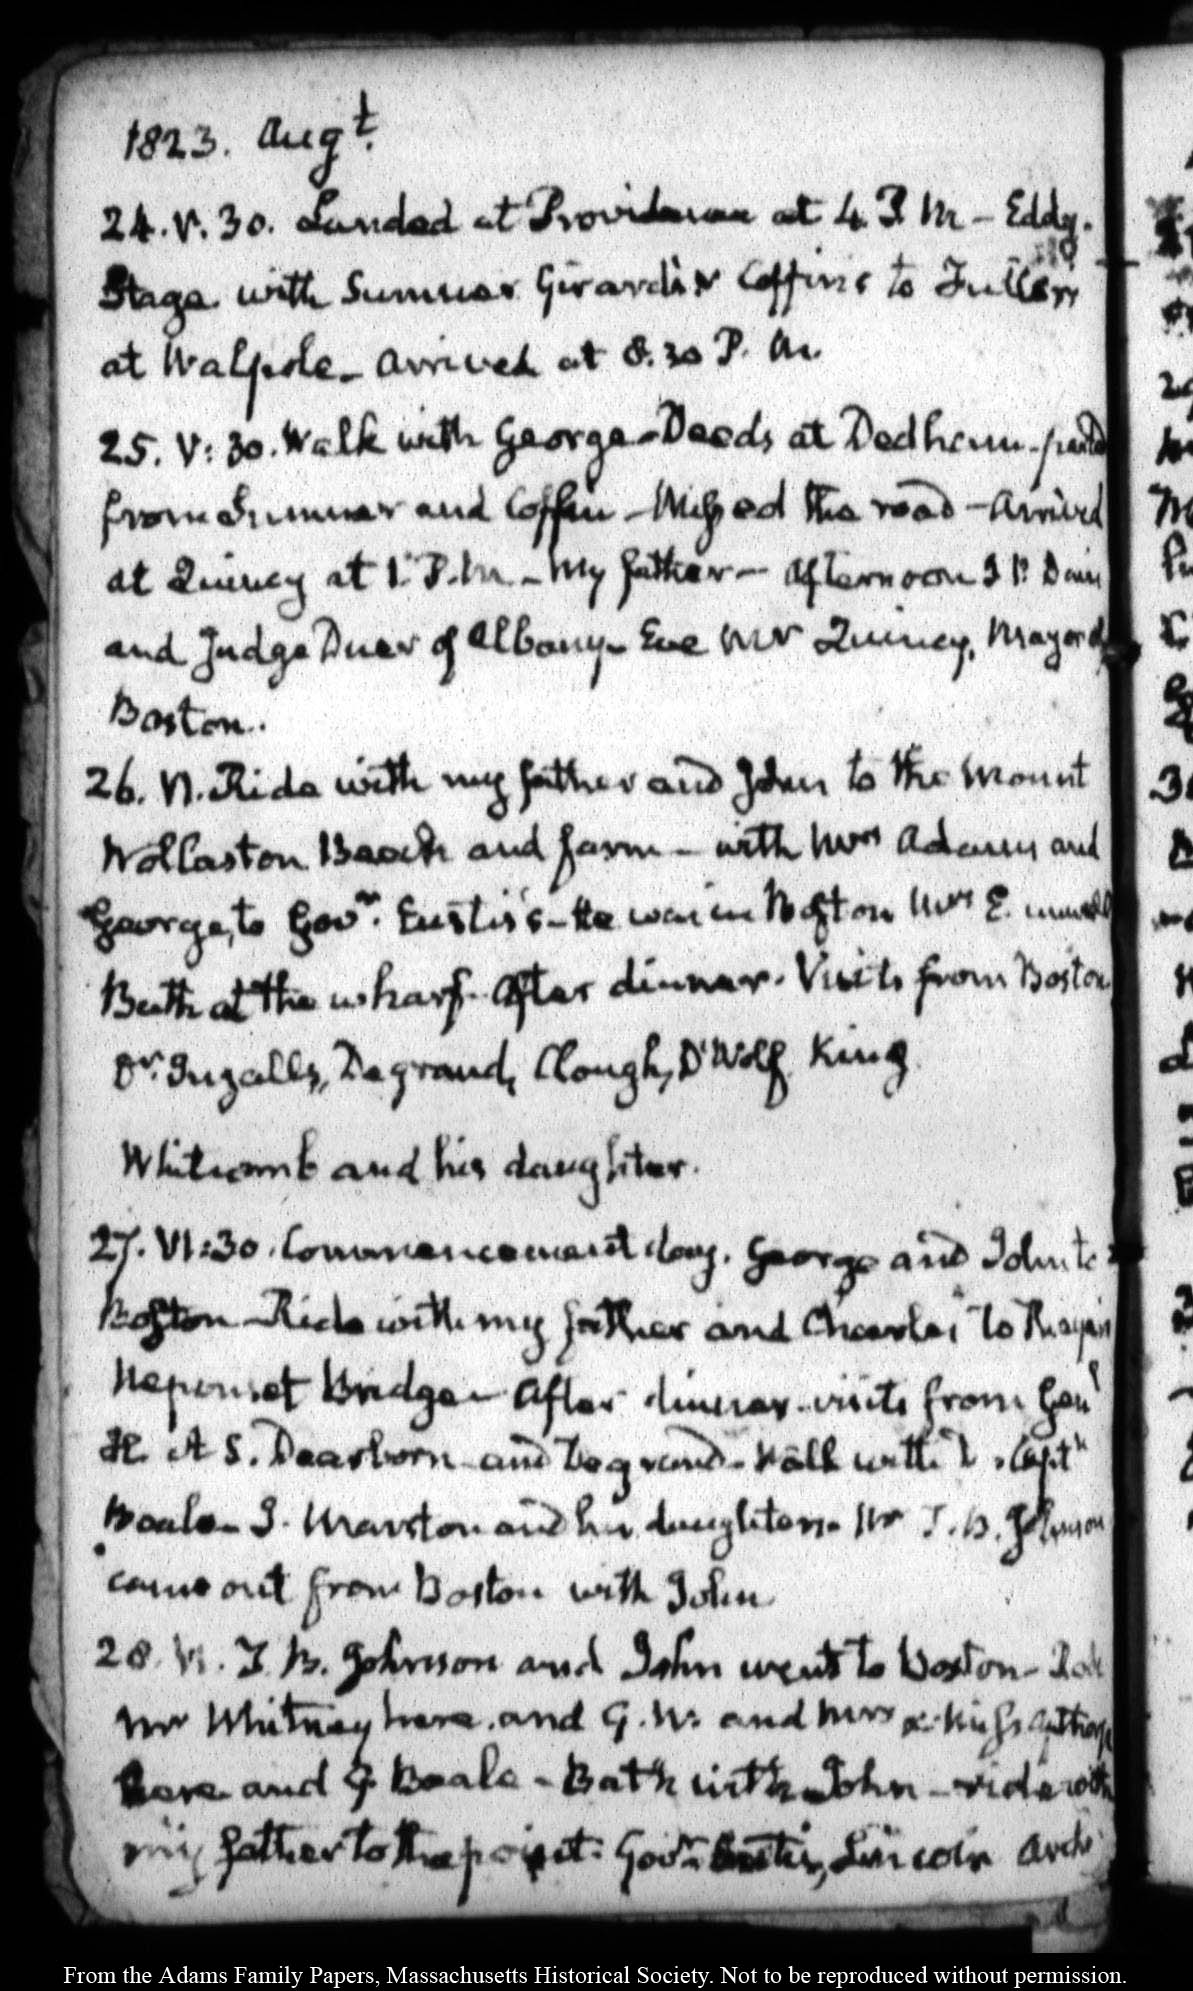 1823. Augt.
24. V. 30. Landed at Providence at 4. P. M – Eddy.
Stage with Sumner Girardin Coffins to Fullers
at Walpole – arrived at 8.30 P. M.
25. V: 30. Walk with George – Deeds at Dedham – parted
from Sumner and Coffin – Missed the road – arrived
at Quincy at 1. P.M. – My father – Afternoon I P. Davis
and Judge Duer of Albany – Eve Mr Quincy, Mayor of
Boston.
26. VI. Ride with my father and John to the Mount
Wollaston Beach and farm – with Mrs Adams and
George, to Govr. Eustis's – He was in Boston Mrs E. unwell
Bath at the wharf. After dinner. Visits from Boston
Dr. Ingalls, Degrand, Clough, D'Wolf King
Whitcomb and his daughter.
27. VI:30. Commencement day. George and John to
Boston – Ride with my father and Charles to
Neponset Bridge – After dinner – visits from Genl
H A S. Dearborn – and Degrand – Walk with Captn
Beale – J. Marston and his daughters – Mr T. B. Johnson
came out from Boston with John
28. VI. T. B. Johnson and John went to Boston –
Mr Whitney here. and G. W. and Mrs & Miss Apthorp
here and G. Beale – Bath with John – ride with
my father to the point. Govr Eustis, Lincoln
From the Adams Family Papers, Massachusetts Historical Society. Not to be reproduced without permission.